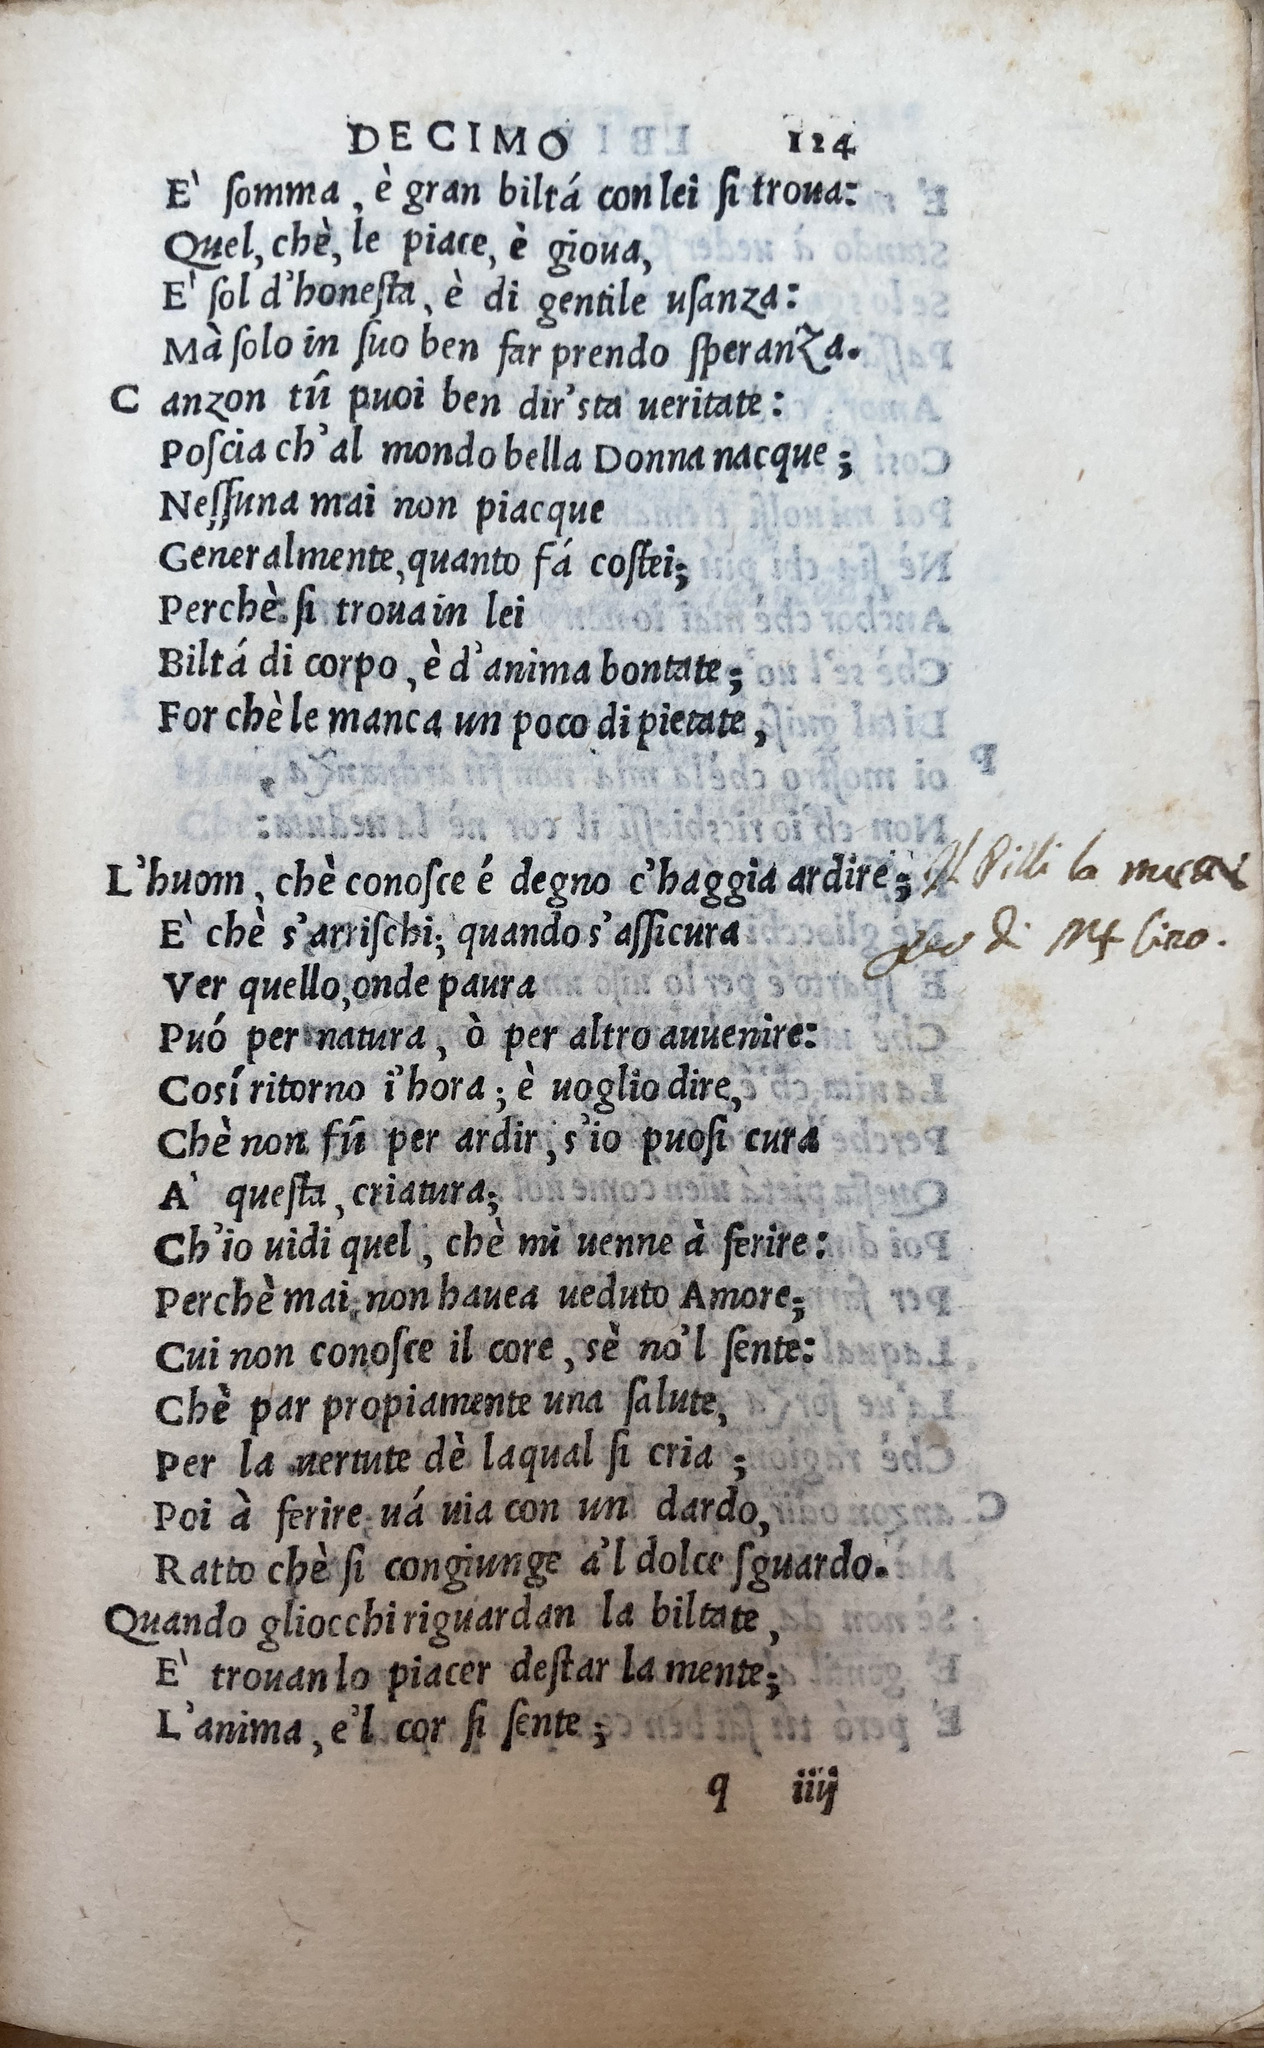 DECIMO 124
E' somma, è gran biltá con lei si troua:
Quel, chè, le piace, è gioua,
E' sol d'honesta, è di gentile usanza:
Mà solo in suo ben far prendo speranza.
Canzon tú puoi ben dir'sta ueritate:
Poscia ch'al mondo bella Donna nacque;
Nessuna mai non piacque
Generalmente, quanto fá costei;
Perchè si troua in lei
Biltá di corpo, è d'anima bontate;
For chè le manca un poco di pietate,
L'huom, chè conosce é degno c'haggia ardire; Il Pilli la
E' chè s'arrischi; quando s'assicura di Cino.
Ver quello, onde paura
Puó per natura, ò per altro auuenire:
Cosí ritorno i'hora; è uoglio dire,
Chè non fú per ardir, s'io puosi cura
A' questa, criatura;
Ch'io uidi quel, chè mi uenne à ferire:
Perchè mai, non hauea ueduto Amore;
Cui non conosce il core, sè no'l sente:
Chè par propiamente una salute,
Per la uertute dè laqual si cria;
Poi à ferire uá uia con un dardo,
Ratto chè si congiunge a'l dolce sguardo.
Quando gliocchi riguardan la biltate,
E' trouan lo piacer destar la mente;
L'anima, e'l cor si sente;
q iiij